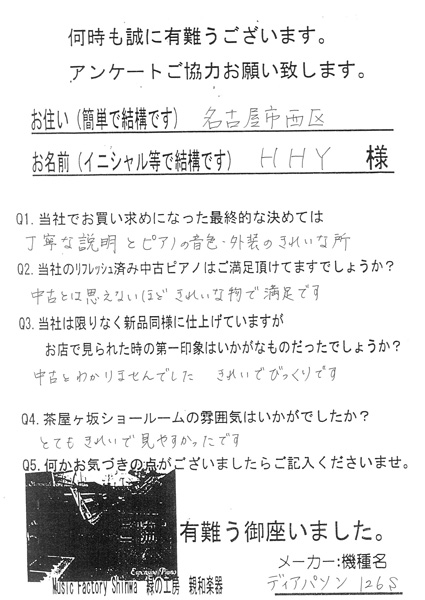 何時も誠に有難うございます。
アンケートご協力お願い致します。
お住い(簡単で結構です) 名古屋市西区
お名前(イニシャル等で結構です) HHY 様
Q1.当社でお買い求めになった最終的な決めては
丁寧な説明とピアノの音色・外装のきれいな所
Q2.当社のリフレッシュ済み中古ピアノはご満足頂けてますでしょうか?
中古とは思えないほどきれいな物で満足です
Q3.当社は限りなく新品同様に仕上げていますが
お店で見られた時の第一印象はいかがなものだったでしょうか?
中古とわかりませんでした きれいでびっくりです
Q4.茶屋ヶ坂ショールームの雰囲気はいかがでしたか?
とてもきれいで見やすかったです
Q5.何かお気づきの点がございましたらご記入くださいませ。
有難う御座いました。
メーカー:機種名
Music Factory Shinwa 緑の工房 親和楽器
ディアパソン 126S